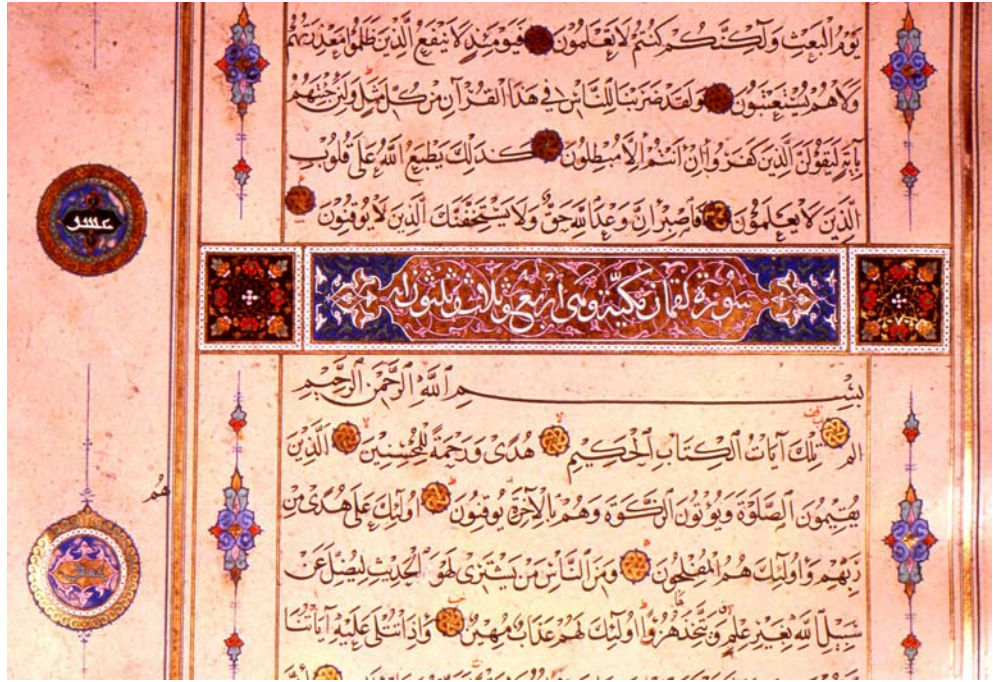 يَوْمُ الْبَعْثِ وَلَٰكِنَّكُمْ كُنْتُمْ لَا تَعْلَمُونَ فَيَوْمَئِذٍ لَا يَنْفَعُ الَّذِينَ ظَلَمُوا مَعْذِرَتُهُمْ
وَلَا هُمْ يُسْتَعْتَبُونَ وَلَقَدْ ضَرَبْنَا لِلنَّاسِ فِي هَذَا الْقُرْآنِ مِنْ كُلِّ مَثَلٍ وَلَئِنْ جِئْتَهُمْ
بِآيَةٍ لَيَقُولَنَّ الَّذِينَ كَفَرُوا إِنْ أَنْتُمْ إِلَّا مُبْطِلُونَ كَذَلِكَ يَطْبَعُ اللَّهُ عَلَى قُلُوبِ
الَّذِينَ لَا يَعْلَمُونَ فَاصْبِرْ إِنَّ وَعْدَ اللَّهِ حَقٌّ وَلَا يَسْتَخِفَّنَّكَ الَّذِينَ لَا يُوقِنُونَ
عشر
سورة لقمان مكية وهى اربع وثلاث وثلثون اية
بِسْمِ اللَّهِ الرَّحْمَنِ الرَّحِيمِ
الم تِلْكَ آيَاتُ الْكِتَابِ الْحَكِيمِ هُدًى وَرَحْمَةً لِلْمُحْسِنِينَ الَّذِينَ
يُقِيمُونَ الصَّلَوةَ وَيُؤْتُونَ الزَّكَوةَ وَهُمْ بِالْآخِرَةِ يُوقِنُونَ أُولَئِكَ عَلَى هُدًى مِنْ
هُم
رَبِّهِمْ وَأُولَئِكَ هُمُ الْمُفْلِحُونَ وَمِنَ النَّاسِ مَنْ يَشْتَرِي لَهْوَ الْحَدِيثِ لِيُضِلَّ عَنْ
سَبِيلِ اللَّهِ بِغَيْرِ عِلْمٍ وَيَتَّخِذَهَا هُزُوًا أُولَئِكَ لَهُمْ عَذَابٌ مُهِينٌ وَإِذَا تُتْلَى عَلَيْهِ آيَاتُنَا